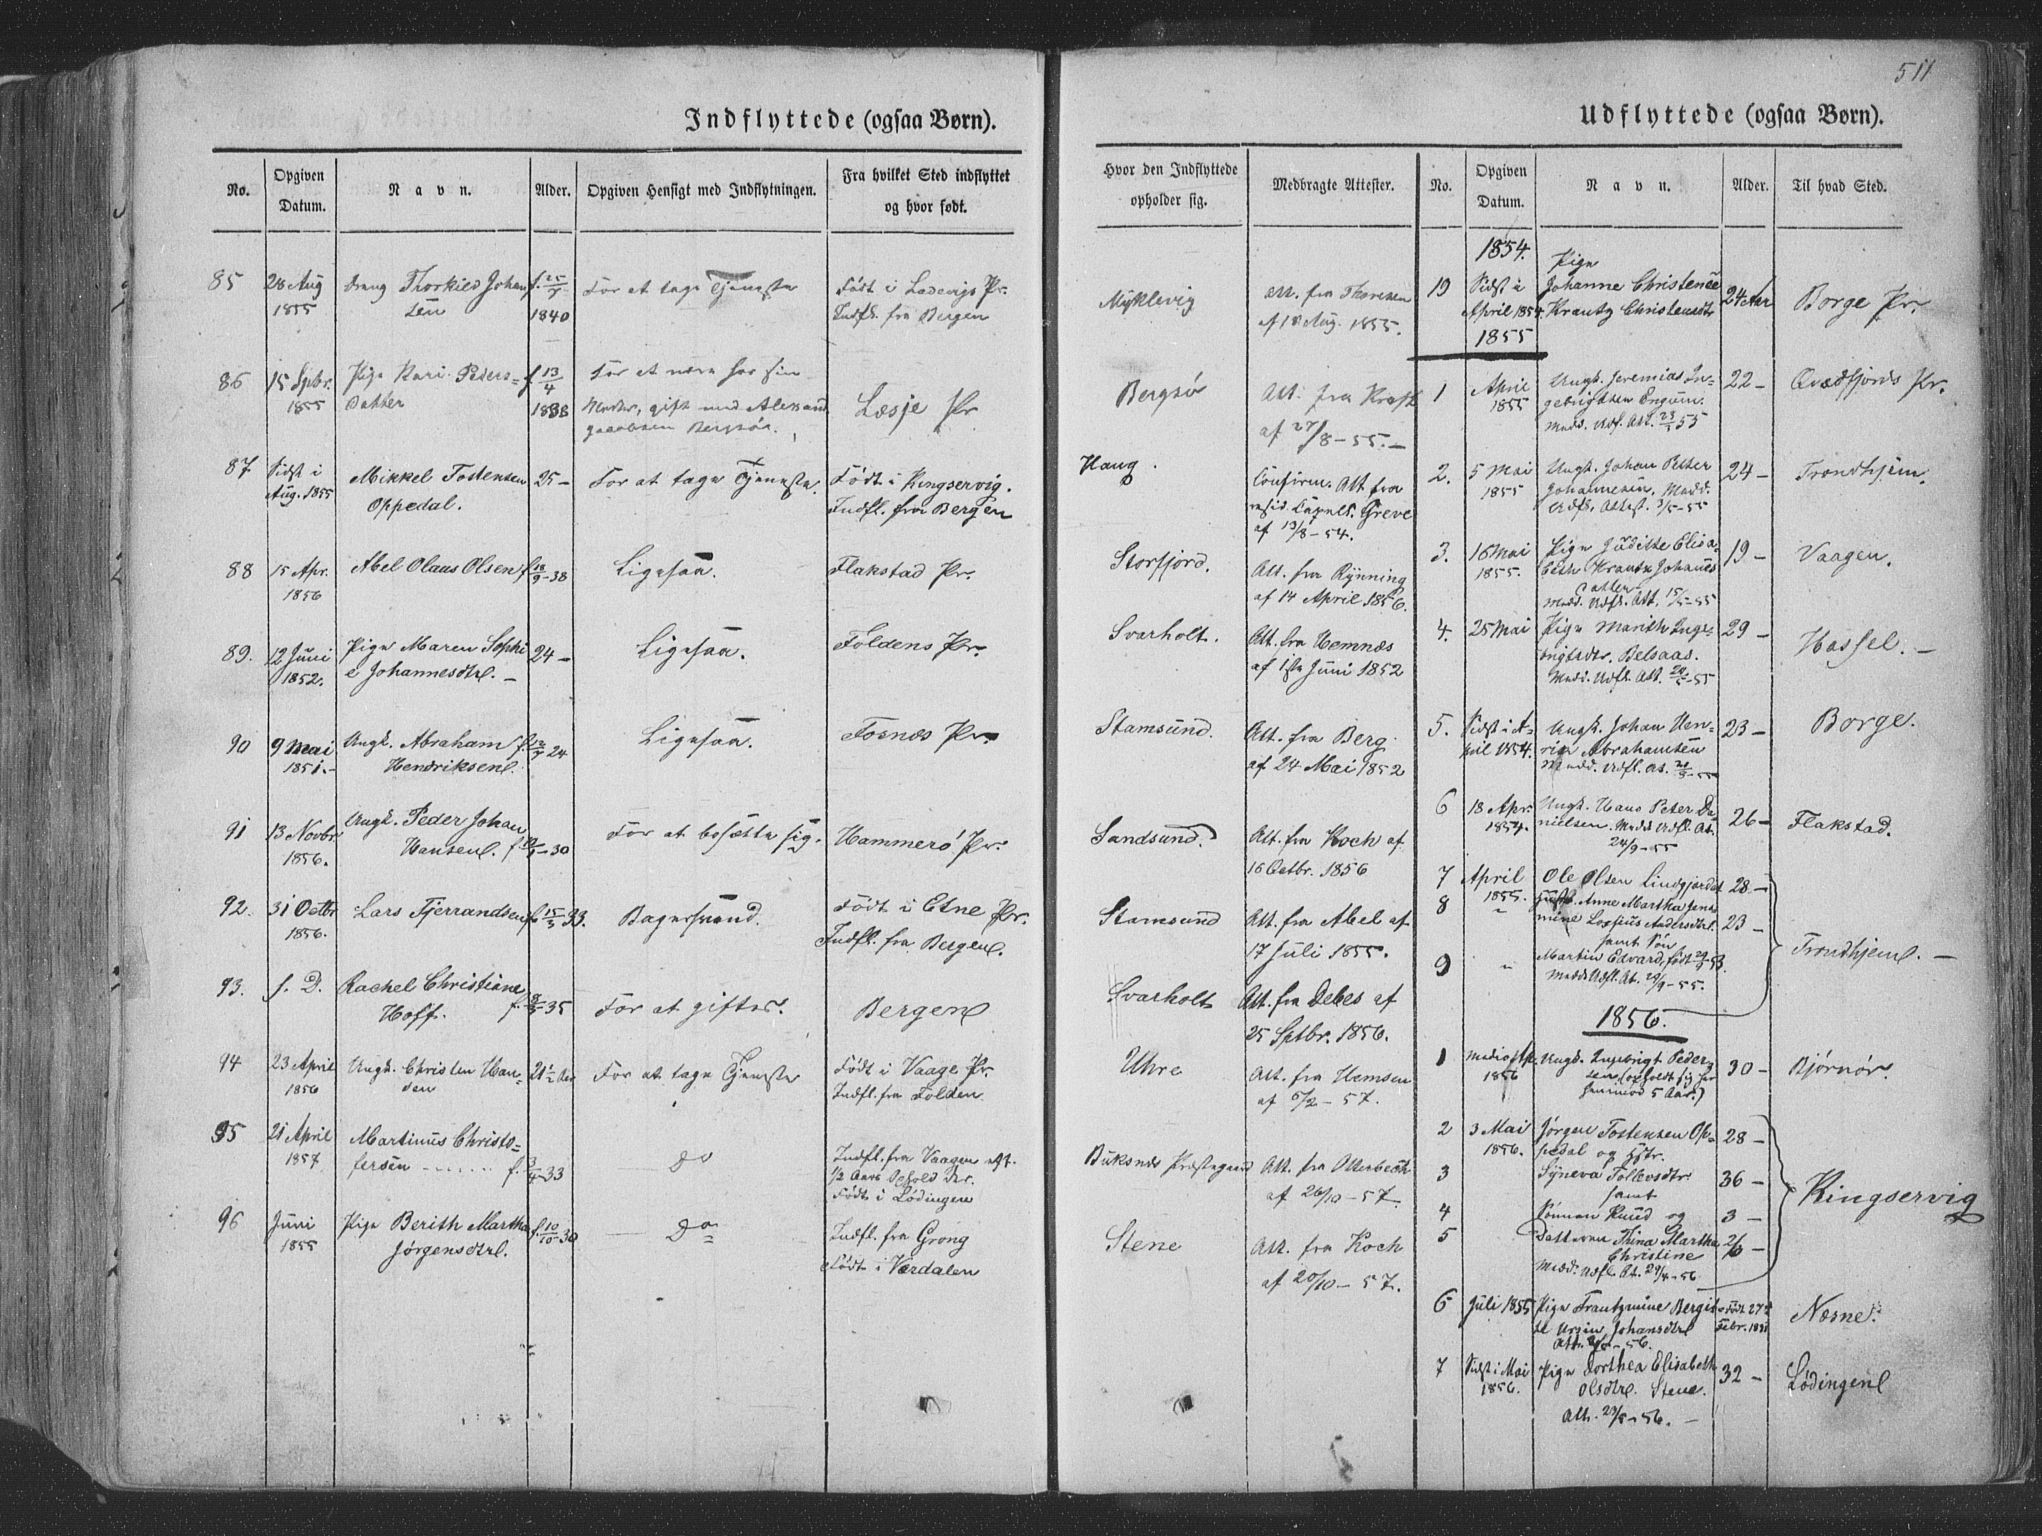 511
Indflyttede (ogsaa Børn).
No.
Opgiven
Datum.
Navn.
Alder.
Opgiven Hensigt med Indflytningen.
Fra hvilket Sted indflyttet
og hvor født.
85
28 Aug
1855
Dreng Thorkild Johan
sen
f. 25/7
1840
For at tage Tjeneste
Født i Ladevigs Pr.
Indfl. fra Bergen
86
15 Spbr.
1855
Pige Kari Peders-
Datter
f. 13/4
1838
For at være hos sin
Moder, gift med
Jacobsen Bergsør.
Læsje Pr
87
Sidst i
Aug. 1855
Mikkel Tostensen
Oppedal.
25 -
For at tage Tjeneste
Født i Kingservig.
Indfl. fra Bergen
88
15 Apr.
1856
Abel Olaus Olsen
f. 18/9-38
Ligesaa.
Flakstad Pr.
89.
12 Juni
1852.
Pige Maren Sophi
e Johannesdtr. -
24 -
Ligesaa.
Foldens Pr.
90
9 Mai
1851.-
Ungk. Abraham
Hendriksen.
24
Ligesaa.
Fosnæs Pr.
91
13 Novbr
1856.
Ungk. Peder Johan
Hansen.
30
For at bosætte sig.
Hammerø Pr.
92.
31 Octbr
1856.
Lars Tjerrandsen
f. 15/3-33.
Bagersvend.
Født i Etne Pr.
Indfl. fra Bergen.
93.
s. D.
Rachel Christiane
Hoff.
35
For at giftes.
Bergen
94
23 April
1856
Ungk. Christen Han-
sen
21 1/2 Aar
For at tage Tjeneste
Født i Vaage Pr.
Indfl. fra Folden
95
21 April
1857
Martinus Christo-
fersen ....... f. 3/4-33
Do
Indfl. fra Vaagen eft.
1/2 Aars Ophold der.
Født i Lødingen
96
Juni
1855
Pige Berith Martha
Jørgensdtr.
f. 10/10-30
Do
Indfl. fra Grong
Født i Værdalen
Udflyttede (ogsaa Børn).
Hvor den Indflyttede
opholder sig.
Medbragte Attester.
No.
Opgiven
Datum.
Navn.
Alder.
Til hvad Sted.
Myklevig
Att. fra Thoresen
af 18 Aug. 1855.
Bergsør
Att. fra Kraft
af 27/8-55.-
Haug.
Confirm. Att. fra
resid. Capell. Greve
af 13/8-54.
Storfjord.
Att. fra Rynning
af 14 April 1856.
Svarholt.
Att. fra Hemnæs
af 1ste Juni 1852
Stamsund.
Att. fra Berg
af 24 Mai 1852
Sandsund.
Att. fra Koch af
16 Octbr. 1856
Stamsund
Att. fra Abel af
17 Juli 1855.
Svarholt
Att. fra Debes af
25 Sptbr. 1856.
Uhre
Att. fra Hemsen
af 6/2-57.
Buksnæs Præstegaard
Att. fra Otterbech
af 26/10-57.
Stene
Att. fra Koch
af 20/10-57.
1854.
19
Sidst i
April 1854.
Pige
Johanne Christence
Krantz Christensdtr
24 Aar
Borge Pr.
1855
1
April
1855
Ungk. Jeremias In-
gebrigtsen Engum.
Medd. Udfl. Att. 23/3 55
22 -
Qvædfjords Pr.
2.
5 Mai
1855
Ungk. Johan Peter
Johannesen, Medd.
Udfl. Attest. 3/5-55
24 -
Trondhjem.
3.
16 Mai
1855.
Pige Judithe Elisa-
beth Krantz Johannes
Datter
Medd. Udfl. Att. 15/5-55
19 -
Vaagen.
4.
25 Mai
Pige Marith Inge-
brigtsdtr. Belsaas.
Medd. Udfl. Att. 20/5-55
29 -
Hassel. -
5.
Sidst i A-
pril 1854.
Ungk. Johan Hen-
rik Abrahamsen
Medd. Udfl. At.
23 -
Borge.
6
18 Apr.
1854.
Ungk. Hans Peter Da-
nielsen. Medd. Udfl. At.
24/9-55
26 -
Flakstad.
7
April
1855.
Ole Olsen Lindgjordet
28 -
8
"
Anne Martha Jens
mine Lossius Andersdtr.
samt Søn
23 -
9
"
Martin Edvard, født
Medd. Udfl. At. 29/9-55.
Trondhjem. -
1856.
1
Medio Apr.
1856
Ungk. Ingebrigt Peder
sen (opholdt sig her
henimod 5 Aar.)
30 -
Bjørnør.
2
3 Mai
1856.
Jørgen Tostensen Op-
pedal og Hstr.
28 -
3
Syneva Tollevsdtr
samt
36 -
4
Sønnen Knud og
3 -
5
Datteren Thina Martha
Christine
Medd. Udfl. At. 29/4-56
Kingservig
6
Juli 1855
Pige Frantzmine Bergit-
te Ursin Johansdtr
Født 27de
Febr. 1831
Næsne.
7
Sidst i Mai
1856.
Pige Dorthea Elisabeth
Olsdtr. Stene.
Att. 23/5-56. -
32 -
Lødingen